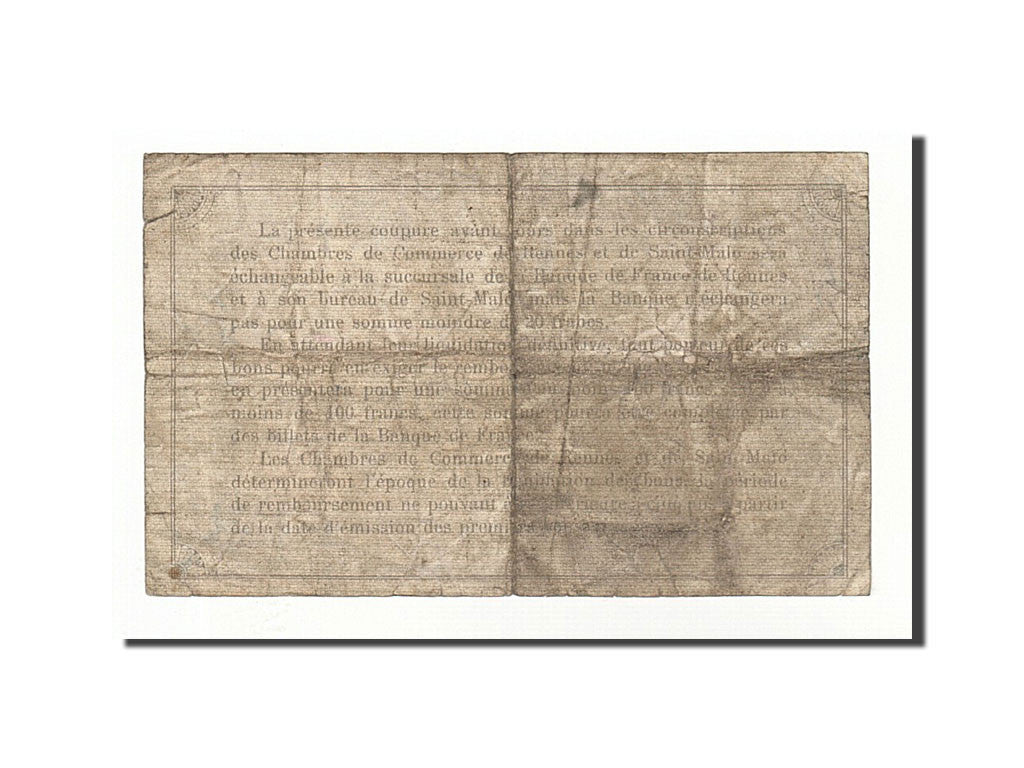 La présente coupure ayant cours dans les circonscriptions
des Chambres de Commerce de Rennes et de Saint-Malo sera
échangeable à la succursale de la Banque de France de Rennes
et à son bureau de Saint-Malo, mais la Banque n'échangera
pas pour une somme moindre de 20 francs.
En attendant leur liquidation définitive, tout porteur de ces
bons pourra en exiger le
en présentera pour une somme d'au moins 100 francs
moins de 100 francs, cette somme pourra être complétée par
des billets de la Banque de France.
Les Chambres de Commerce de Rennes et de Saint-Malo
détermineront l'époque de la liquidation des bons, la période
de remboursement ne pouvant à partir
de la date d'émission des premiers